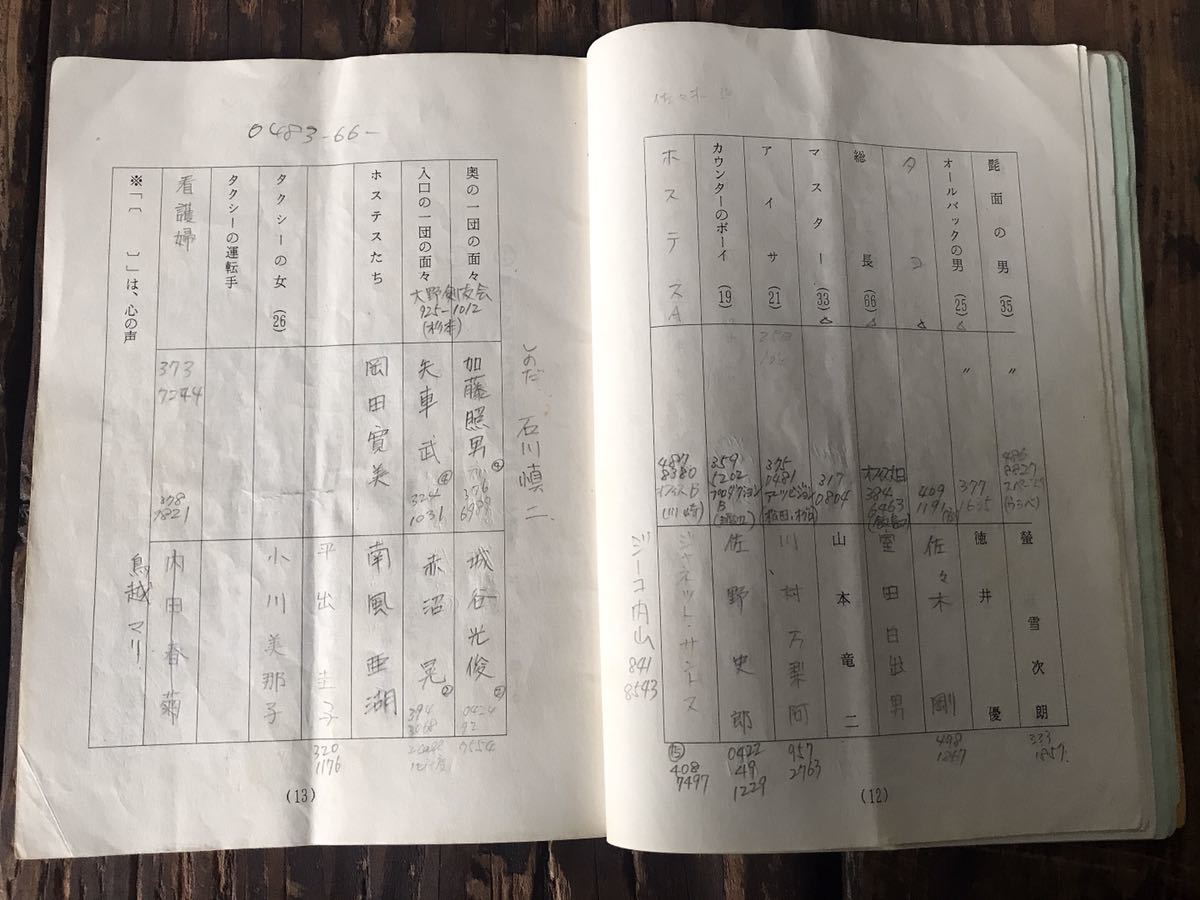 髭面の男(35)
〃
螢雪次朗
333
1857
オールバックの男(25)
〃
377
1635
徳井優
タコ
409
1191
佐々木剛
498
1267
総長(66)
384
6463
室田日出男
マスター(33)
317
0804
山本竜二
アイサ(21)
375
0481
川村万梨阿
957
2763
カウンターのボーイ(19)
359
5202
プロダクション
B
佐野史郎
0422
49
1229
ホステスA
487
8380
オフィスB
(川崎)
ジャネット・サントス
⑮
408
7497
ジーコ内山
841
8543
(12)
0483-66-
しのだ 石川慎二
奥の一団の面々
加藤照男
376
城谷光俊
0424
92
7554
入口の一団の面々
大野剣友会
925-1012
矢車武
324
1031
赤沼晃
394
ホステスたち
岡田寛美
南風亜湖
平出圭子
320
1176
タクシーの女(26)
小川美那子
タクシーの運転手
看護婦
373
7244
378
7821
内田春菊
鳥越マリ
※「〔 〕」は、心の声
(13)